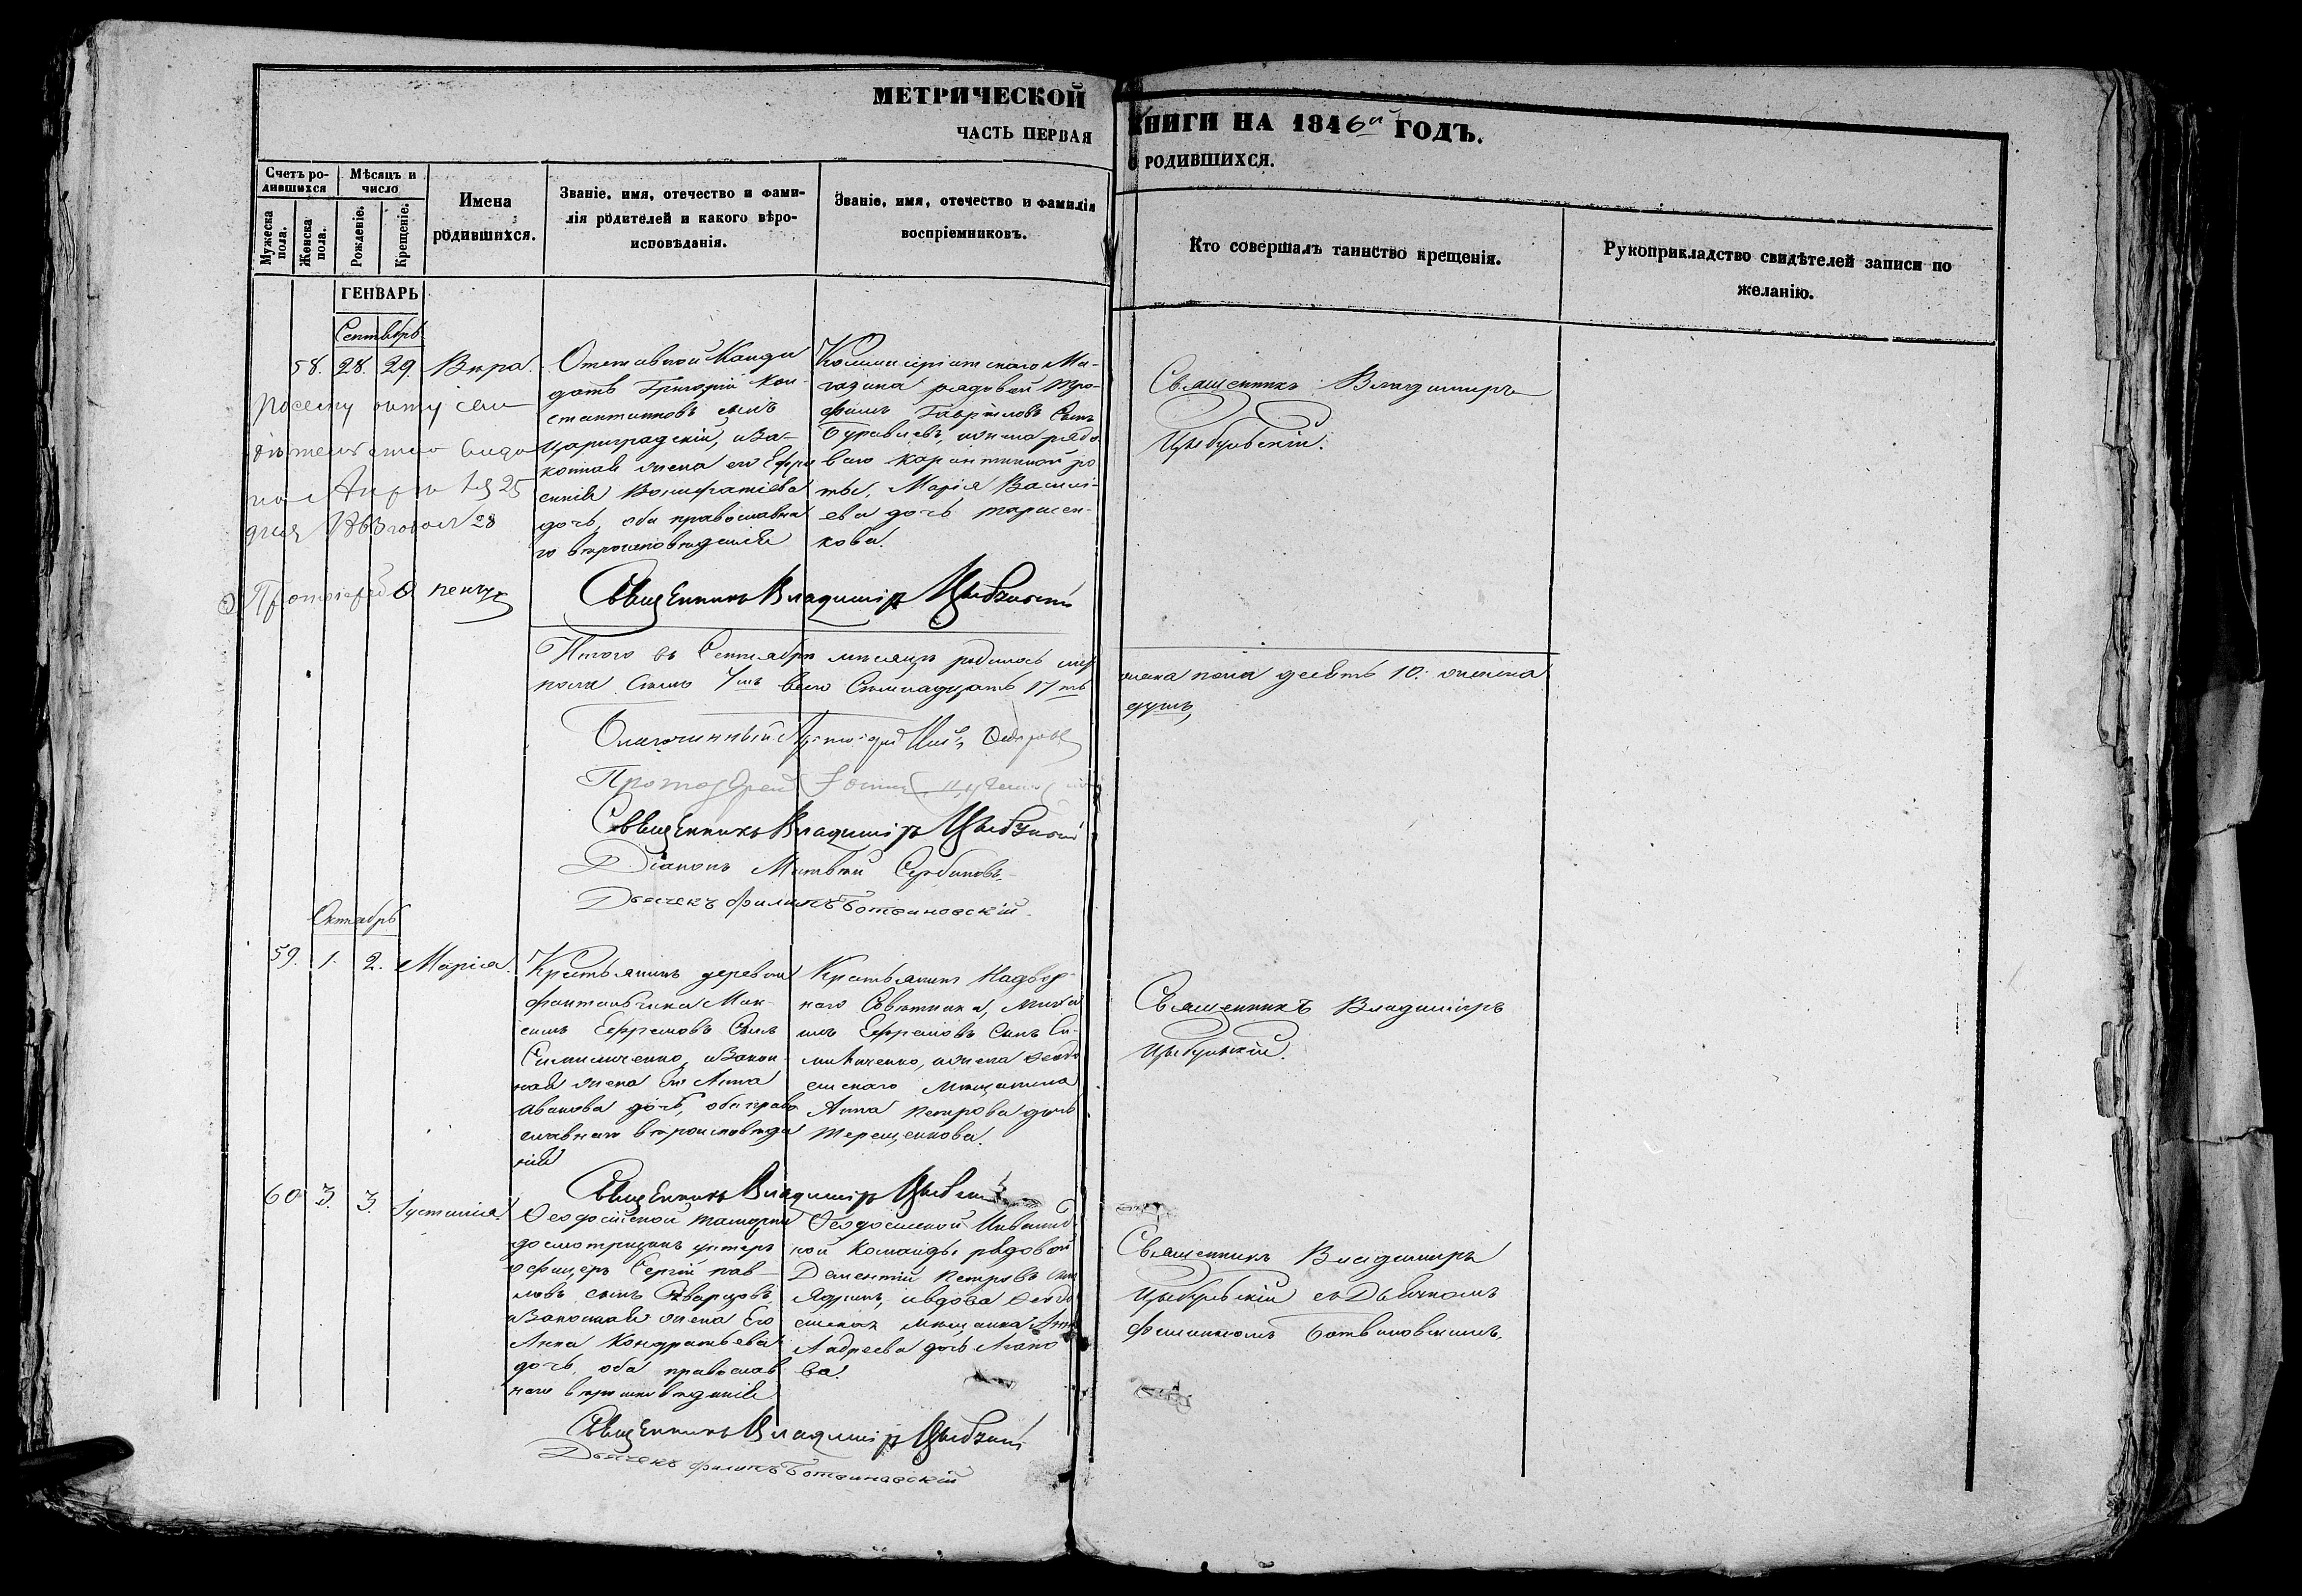 МЕТРИЧЕСКОЙ
КНИГИ НА 1846й ГОДЪ.
ЧАСТЬ ПЕРВАЯ
О РОДИВШИХСЯ.
Счетъ ро-
дившихся
Мужеска пола.
Женска пола.
Мѣсяцъ и
число
Рожденіе.
Крещеніе.
Имена
родившихся.
Званіе, имя, отечество и фами-
лія родителей и какого вѣро-
исповѣданія.
Званіе, имя, отечество и фамилія
воспріемниковъ.
Кто совершалъ таинство крещенія.
Рукоприкладство свидѣтелей записи по
желанію.
ГЕНВАРЬ
Сентябрь
58. 28. 29. Вѣра.
Отставной Канди
датъ Григорій Кон-
стантиновъ сынъ
Цариградскій, иза-
конная жена его Ефро
дочь, оба православна
го вѣроисповѣданія
Коммисаріатскаго Ма-
газина рядовой Тро-
фимъ Гавриловъ Сынъ
ижена рядо
ваго карантинной ро
ты, Марія Василі-
ева дочь
кова.
Священникъ Владимиръ
Цыбульскій.
по сему акту сви
дѣтельство выдано
28
Протоіерей
Священникъ Владиміръ Цыбульскій
Итого въ Сентябрѣ мѣсяцѣ родилось муж
жеска пола десять 10. женска
пола семь 7мь всего Семнадцать 17ть
душъ,
Благочинный Протоіерей
Протоіерей
Священникъ Владиміръ Цыбульскій
Діаконъ Матвѣй Сербиновъ
Дьячекъ Филипъ Ботвиновскій.
Октябрь
59. 1. 2. Марія.
Крестьянинъ деревни
симъ Ефремовъ Сынъ
изакон-
ная жена Его Анна
Иванова дочь, оба право
славнаго вѣроисповѣда
нія
Крестьянинъ Надвор-
наго Совѣтника, Миха
илъ Ефремовъ Сынъ Си-
ижена Ѳеодо
сійскаго мѣщанина
Анна Петрова дочь
Терещенкова.
Священникъ Владиміръ
Цыбульскій.
Священникъ Владиміръ Цыбульскій
60 3. 3. Іустинія.
Ѳеодосійской таможни
досмотрщикъ унтеръ
офицеръ Сергій Пав-
ловъ сынъ Скварцовъ
изаконная жена Его
Анна Кондратьева
дочь, оба православ
наго вѣроисповѣданія
Ѳеодосійской Инвалид-
ной Команды рядовой
Дементій Петровъ сынъ
Ядринъ, ивдова Ѳеодо
сійская мѣщанка Анна
Андреева дочь Агапо
ва.
Священникъ Владиміръ
Цыбульскій съ Дьячкомъ
Филипомъ Ботвиновскимъ.
Священникъ Владиміръ Цыбульскій
Дьячекъ Филипъ Ботвиновскій